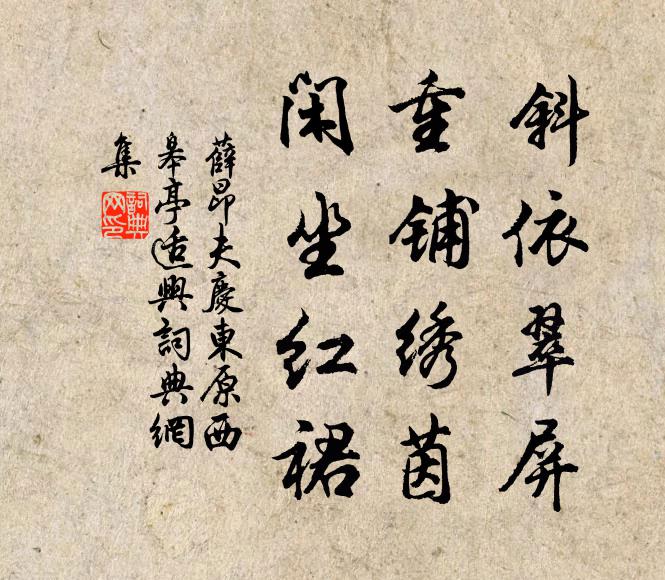 斜依翠屏
重铺绣茵
闲坐红裙
薛昂夫慶東原西
皋亭适興詞典網
集
詞典
网印